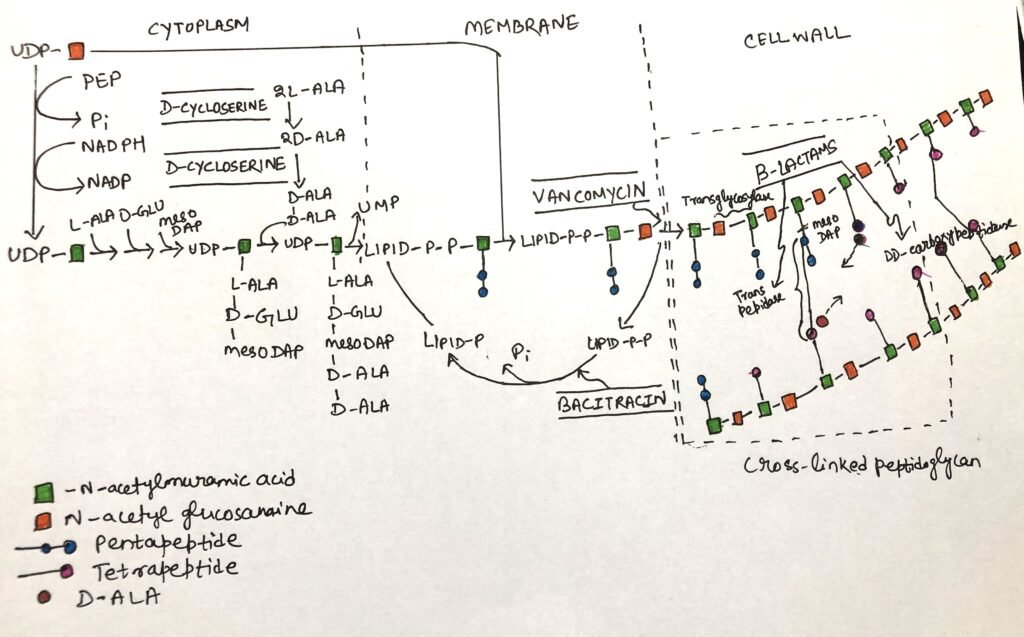 CYTOPLASM
MEMBRANE
CELLWALL
UDP-
PEP
Pi
NADPH
NADP
D-CYCLOSERINE
D-CYCLOSERINE
2L-ALA
2D-ALA
D-ALA
D-ALA
UMP
L-ALA D-GLU meso
DAP
UDP-
UDP-
UDP-
L-ALA
D-GLU
mesoDAP
L-ALA
D-GLU
mesoDAP
D-ALA
D-ALA
LIPID-P-P-
LIPID-P-P-
VANCOMYCIN
LIPID-P
Pi
LIPID-P-P
BACITRACIN
B-LACTAMS
Transglycosylase
meso
DAP
DD-carboxypeptidase
Trans
pebidase
Cross-linked peptidoglycan
-N-acetylmuramic acid
N-acetyl glucosamine
Pentapeptide
Tetrapeptide
D-ALA